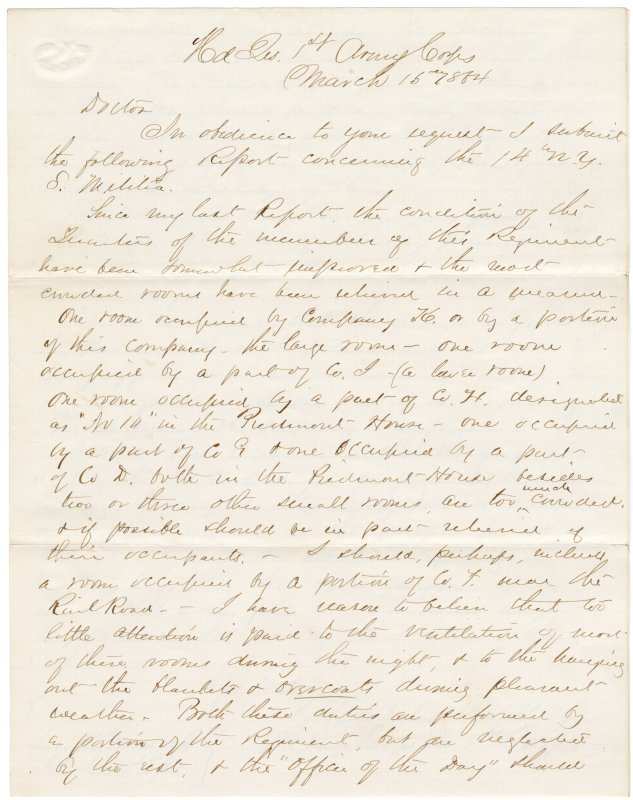 Hd Qrs. 1st Army Corps
March 15th /864
Doctor
In obedience to your request I submit
the following Report concerning the 14th N.Y.
S. Militia.
Since my last Report, the condition of the
Quarters of the members of this Regiment
have been somewhat improved & the most
crowded rooms have been relieved in a measure –
One room occupied by Company K. or by a portion
of this company – the large room – one room
occupied by a part of Co. I – (a large room)
One room occupied by a part of Co. H. designated
as "No 14" in the Piedmont House – one occupied
by a part of Co E & one occupied by a part
of Co D. both in the Piedmont House besides
two or three other small rooms, are too much crowded.
& if possible should be in part relieved of
their occupants. – I should, perhaps, include
a room occupied by a portion of Co. F. near the
Rail Road – – I have reason to believe that too
little attention is paid to the ventilation of most
of these rooms during the night, & to the hanging
out the blankets & overcoats during pleasant
weather. Both these duties are performed by
a portion of the Regiment, but are neglected
by the rest, & the "Officer of the Day" should